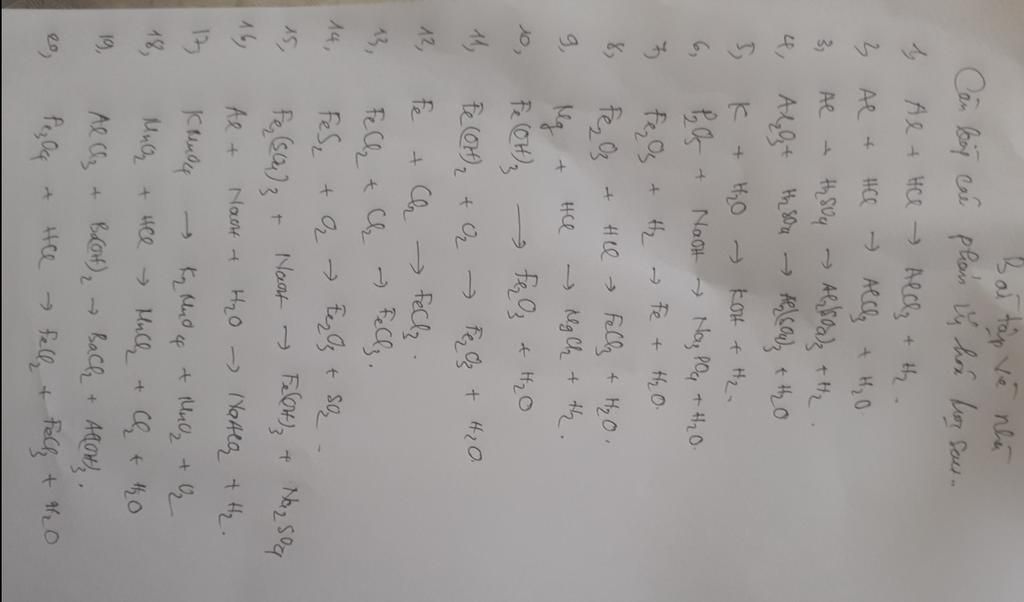 Bài tập về nhà
Cân bằng các phản ứng hoá học sau..
1, Al + HCl → AlCl3 + H2.
2, Al + HCl → AlCl3 + H2O
3, Al + H2SO4 → Al2(SO4)3 + H2.
4, Al2O3 + H2SO4 → Al2(SO4)3 + H2O
5, K + H2O → KOH + H2.
6, P2O5 + NaOH → Na3PO4 + H2O.
7, Fe2O3 + H2 → Fe + H2O.
8, Fe2O3 + HCl → FeCl3 + H2O.
9, Mg + HCl → MgCl2 + H2.
10, Fe(OH)3 → Fe2O3 + H2O
11, Fe(OH)2 + O2 → Fe2O3 + H2O
12, Fe + Cl2 → FeCl3.
13, FeCl2 + Cl2 → FeCl3.
14, FeS2 + O2 → Fe2O3 + SO2.
15, Fe2(SO4)3 + NaOH → Fe(OH)3 + Na2SO4
16, Al + NaOH + H2O → NaAlO2 + H2.
17, KMnO4 → K2MnO4 + MnO2 + O2
18, MnO2 + HCl → MnCl2 + Cl2 + H2O
19, AlCl3 + Ba(OH)2 → BaCl2 + Al(OH)3.
20, Fe3O4 + HCl → FeCl2 + FeCl3 + H2O